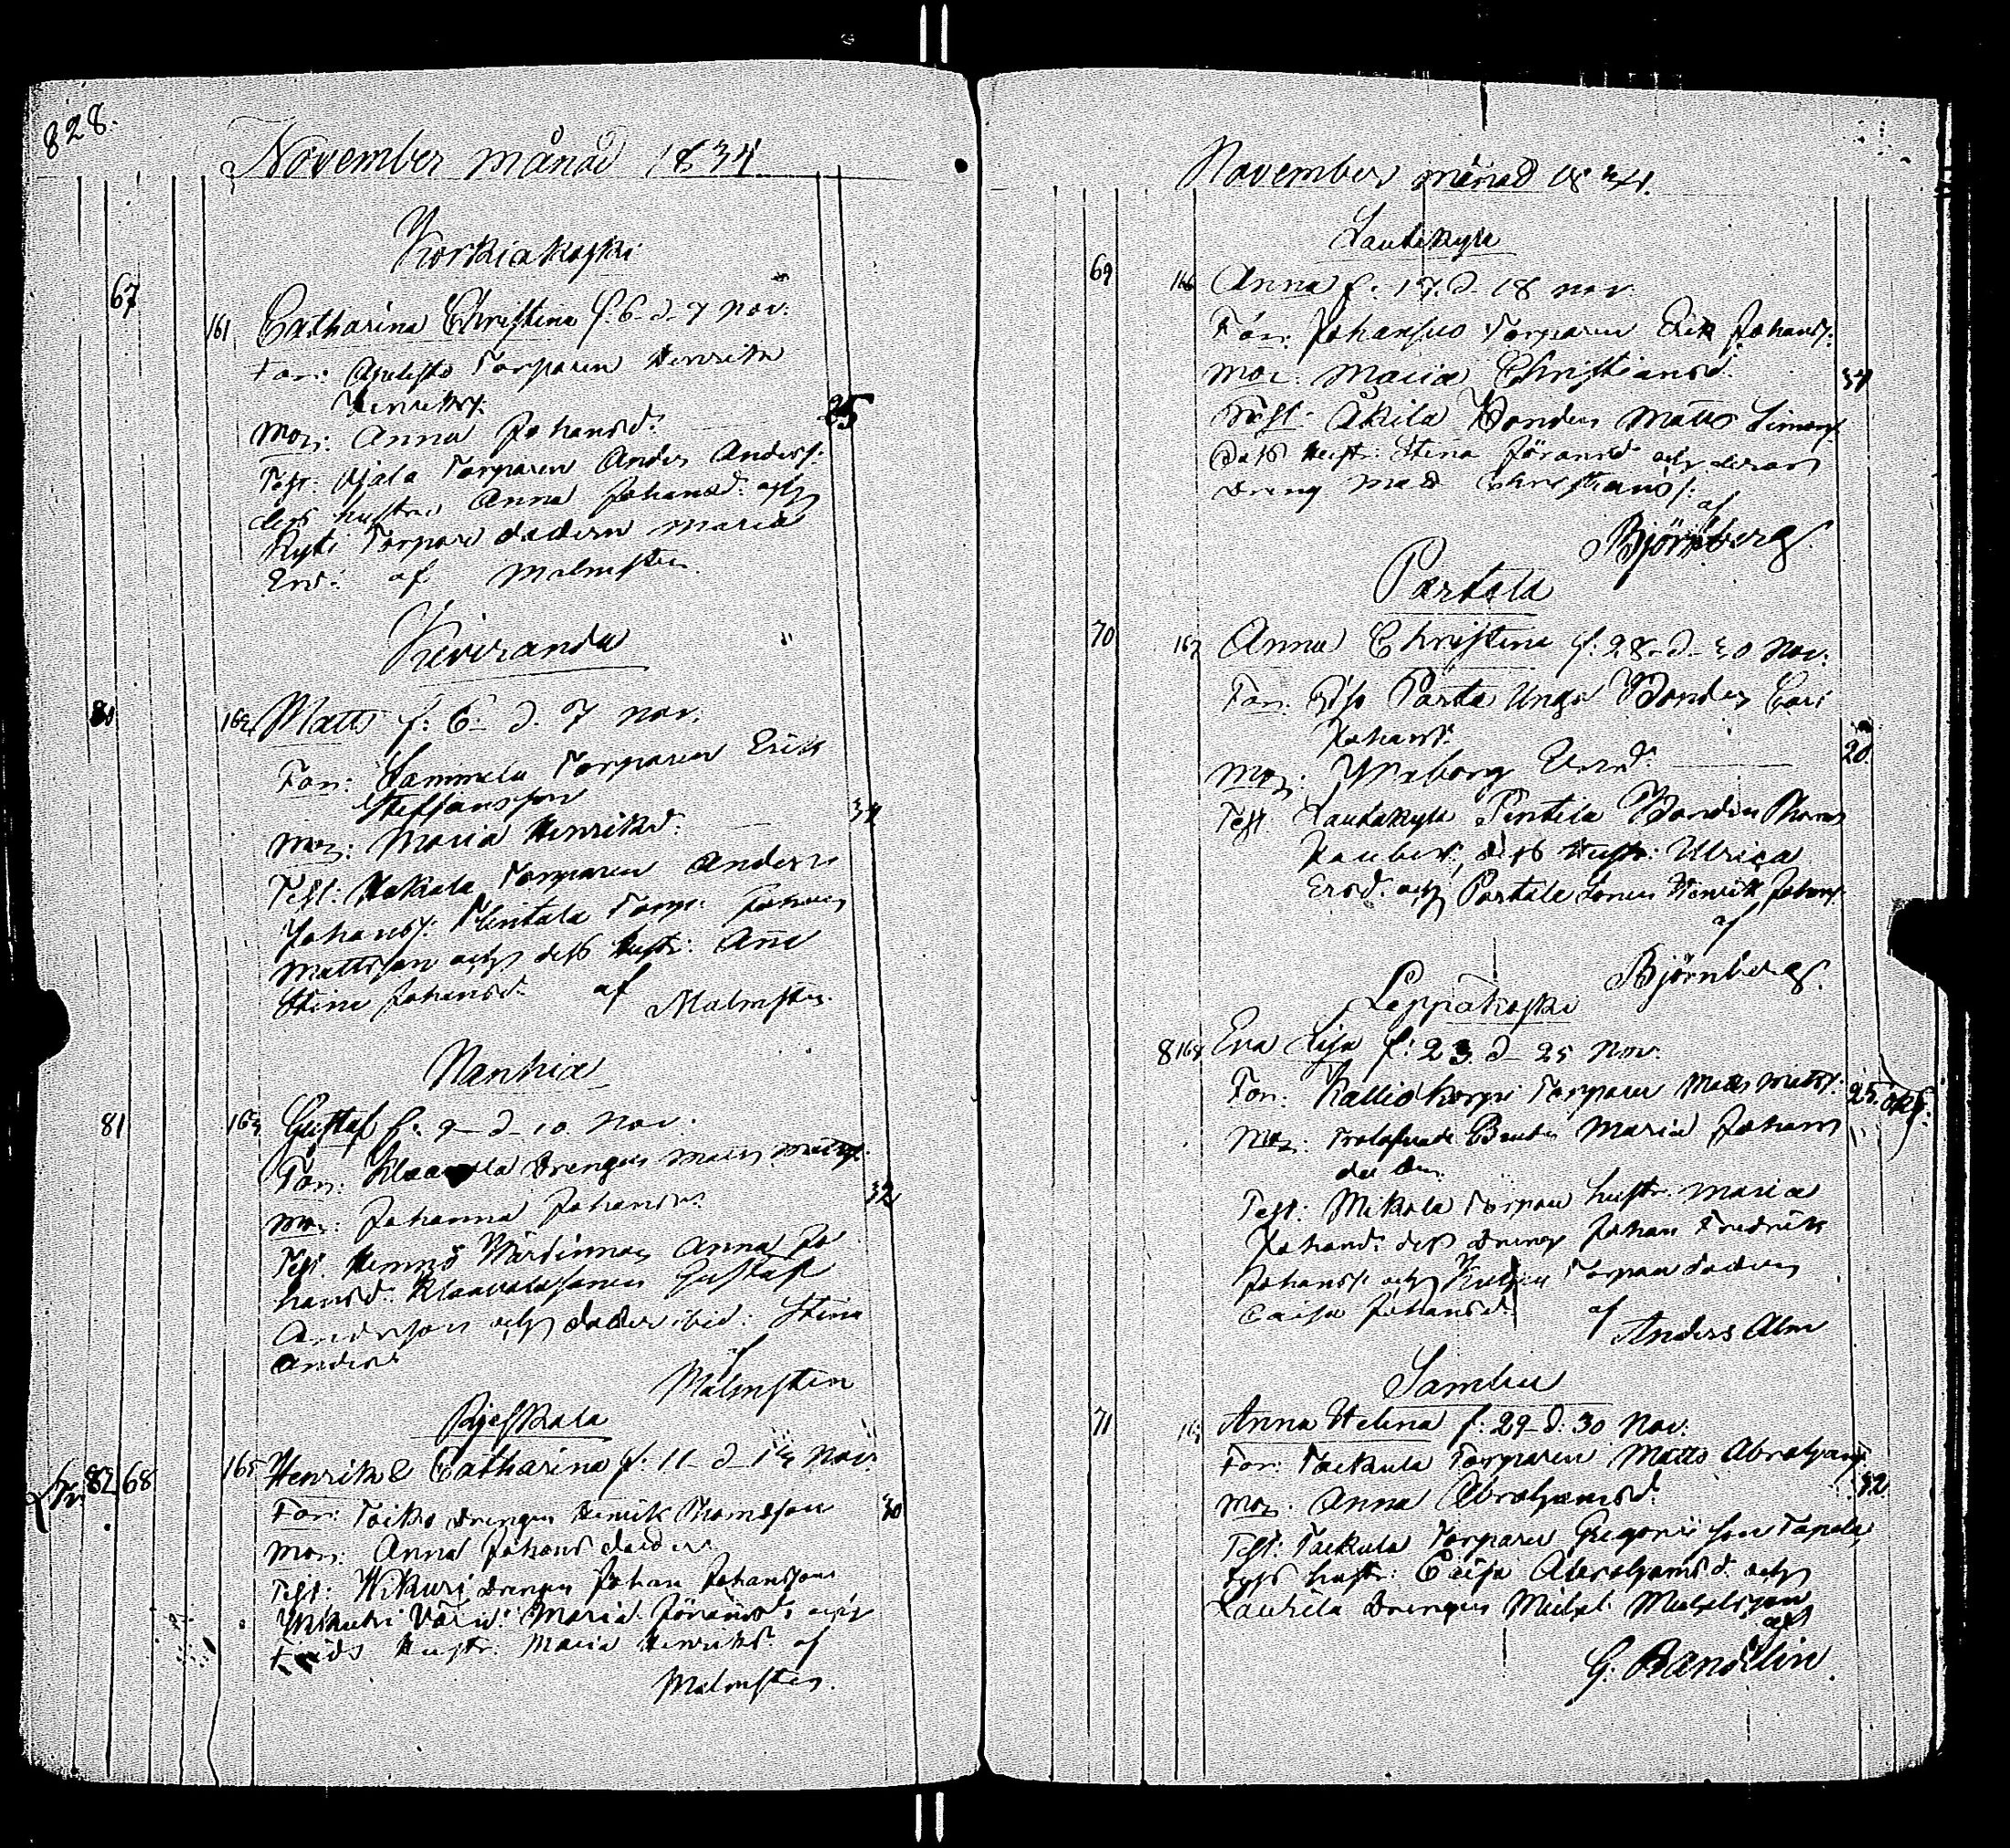 828.
November månad 1834
Korkiakoski
67
161 Catharina Christina f. 6 d. 7 nov.
Far: Torparen Henrik
Henriks.
Mor: Anna Johansd: 25
Test: Ojala Torparen Anders Anderss.
dess hustru Anna Johansd: och
Kyti Torpare dottren Maria
Ersd: af Malmsten.
Kiviranda
80 162 Matts f: 6 d. 7 nov.
Far: Sammela Torparen Erik
Steffansson
Mor: Maria Henriksd: 34
Test: Torparen Anders
Johanss: Torp: Johan
Mattsson och dess hustr: Anna
Stina Johansd: af Malmsten.
Nanhia
81 163 Gustaf f. 9 d. 10 nov.
Far: Klaavola Drengen Matts Matts.
Mor: Johanna Johansd: 32
Test: Hemmö Värdinnan Anna Jo
hansd: Klaavola sonen Gustaf
Andersson och dotter ibid: Stina
Andersd
af
Malmsten
82 68 165 Henrik & Catharina f: 11 d 14 Nov.
Far: Toiko Drengen Henrik Thomasson 30
Mor: Anna Johans dotter
Test: Hikuri Drengen Johan Johansson
Maria Jöransd: och
Hustr: Maria Henriksd. af
Malmsten.
November månad 1834.
Lautakylä
69 166 Anna f. 17. d. 18 nov.
Far: Torparen Erik Johans:
Mor: Maria Christiansd. 34
Test: Äkilä Bonden Matts Simons
Dess Hustr: Stina Jöransd och deras
Dreng Matts Christians:
af
Björnberg.
Partala
70 167 Anna Christina f. 28 d. 30 Nov:
Far: Parta Unga Bonden Carl
Johans:
Mor: Ersd: 20
Test: Lautakylä Pentilä Bonden Thomas
dess Hustr: Ulrica
Ersd. och Partala Sonen Henrik Johans.
af
Björnberg.
Leppäkoski
8 168 Eva Lisa f: 23 d 25 Nov.
Far: Kalliokorpi Torparen Matts Matts: 25
Mor: Trolofvade Maria Johans
dotter
Test: Mikola Torpare hustr. Maria
Johansd: dess Dreng Johan Fredrik
Johanss och Torpare dottren
Caisa Johansd. af
Anders Alm
Sambu
71 169 Anna Helena f. 29 d. 30 Nov.
Far: Torparen Matts Abrahams
Mor: Anna Abrahamsd. 32
Test: Torparen Gregori son
dess hustr: Caisa Abrahamsd. och
Laurila Drengen Michel Michelsson
af
G. Bandelin.